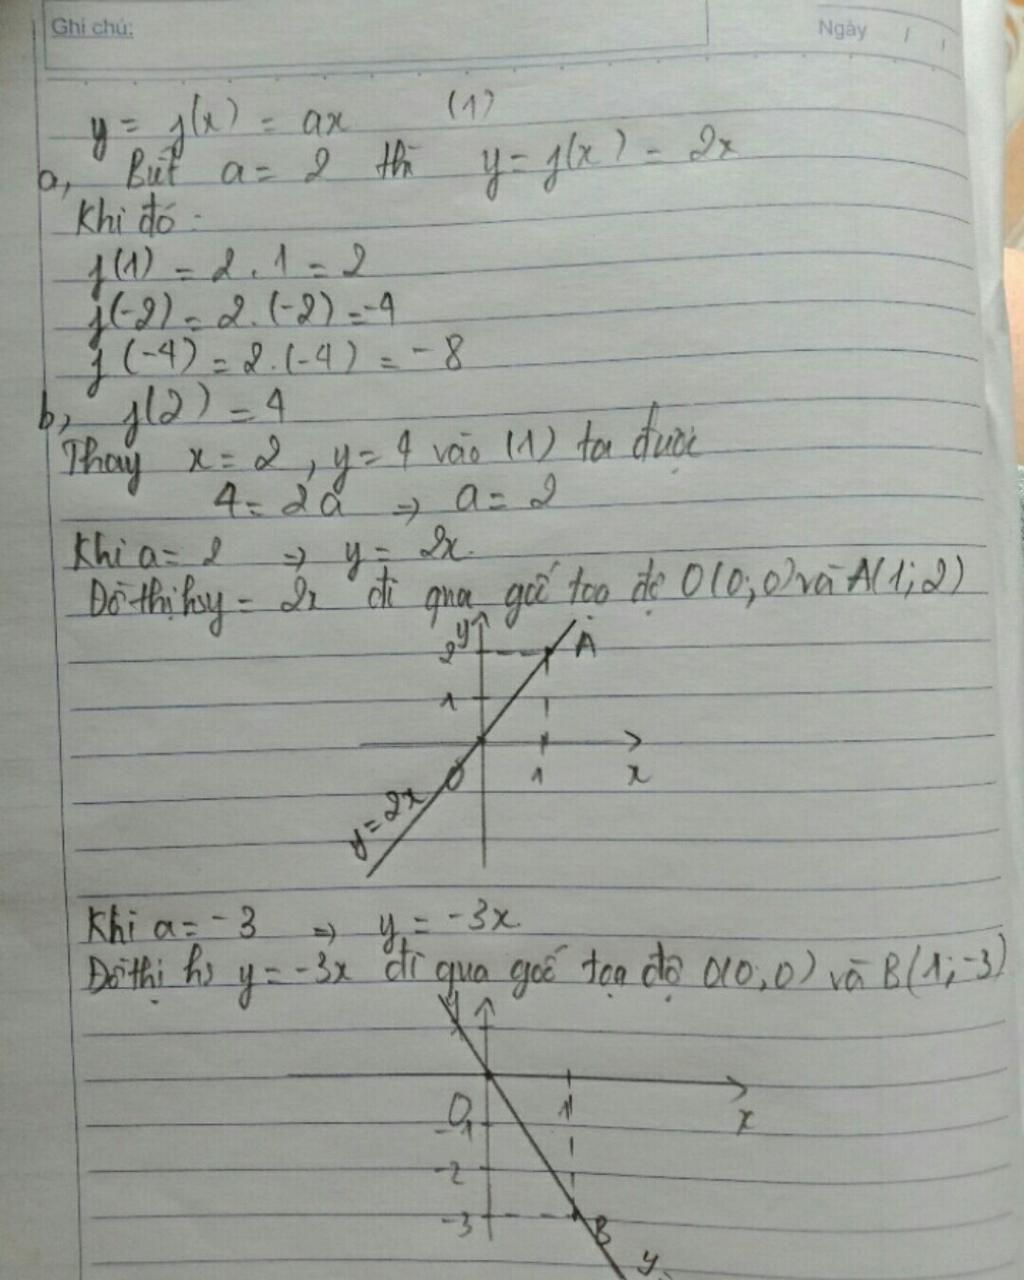 Ghi chú:
Ngày / /
y = f(x) = ax (1)
a, Biết a = 2 thì y = f(x) = 2x
Khi đó:
f(1) = 2.1 = 2
f(-2) = 2.(-2) = -4
f(-4) = 2.(-4) = -8
b, f(2) = 4
Thay x = 2, y = 4 vào (1) ta được
4 = 2a => a = 2
Khi a = 2 => y = 2x.
Đồ thị hs y = 2x đi qua gốc tọa độ O(0;0) và A(1;2)
y
2 A
1
O 1 x
y = 2x
Khi a = -3 => y = -3x.
Đồ thị hs y = -3x đi qua gốc tọa độ O(0;0) và B(1;-3)
y
O 1 x
-1
-2
-3 B
y =